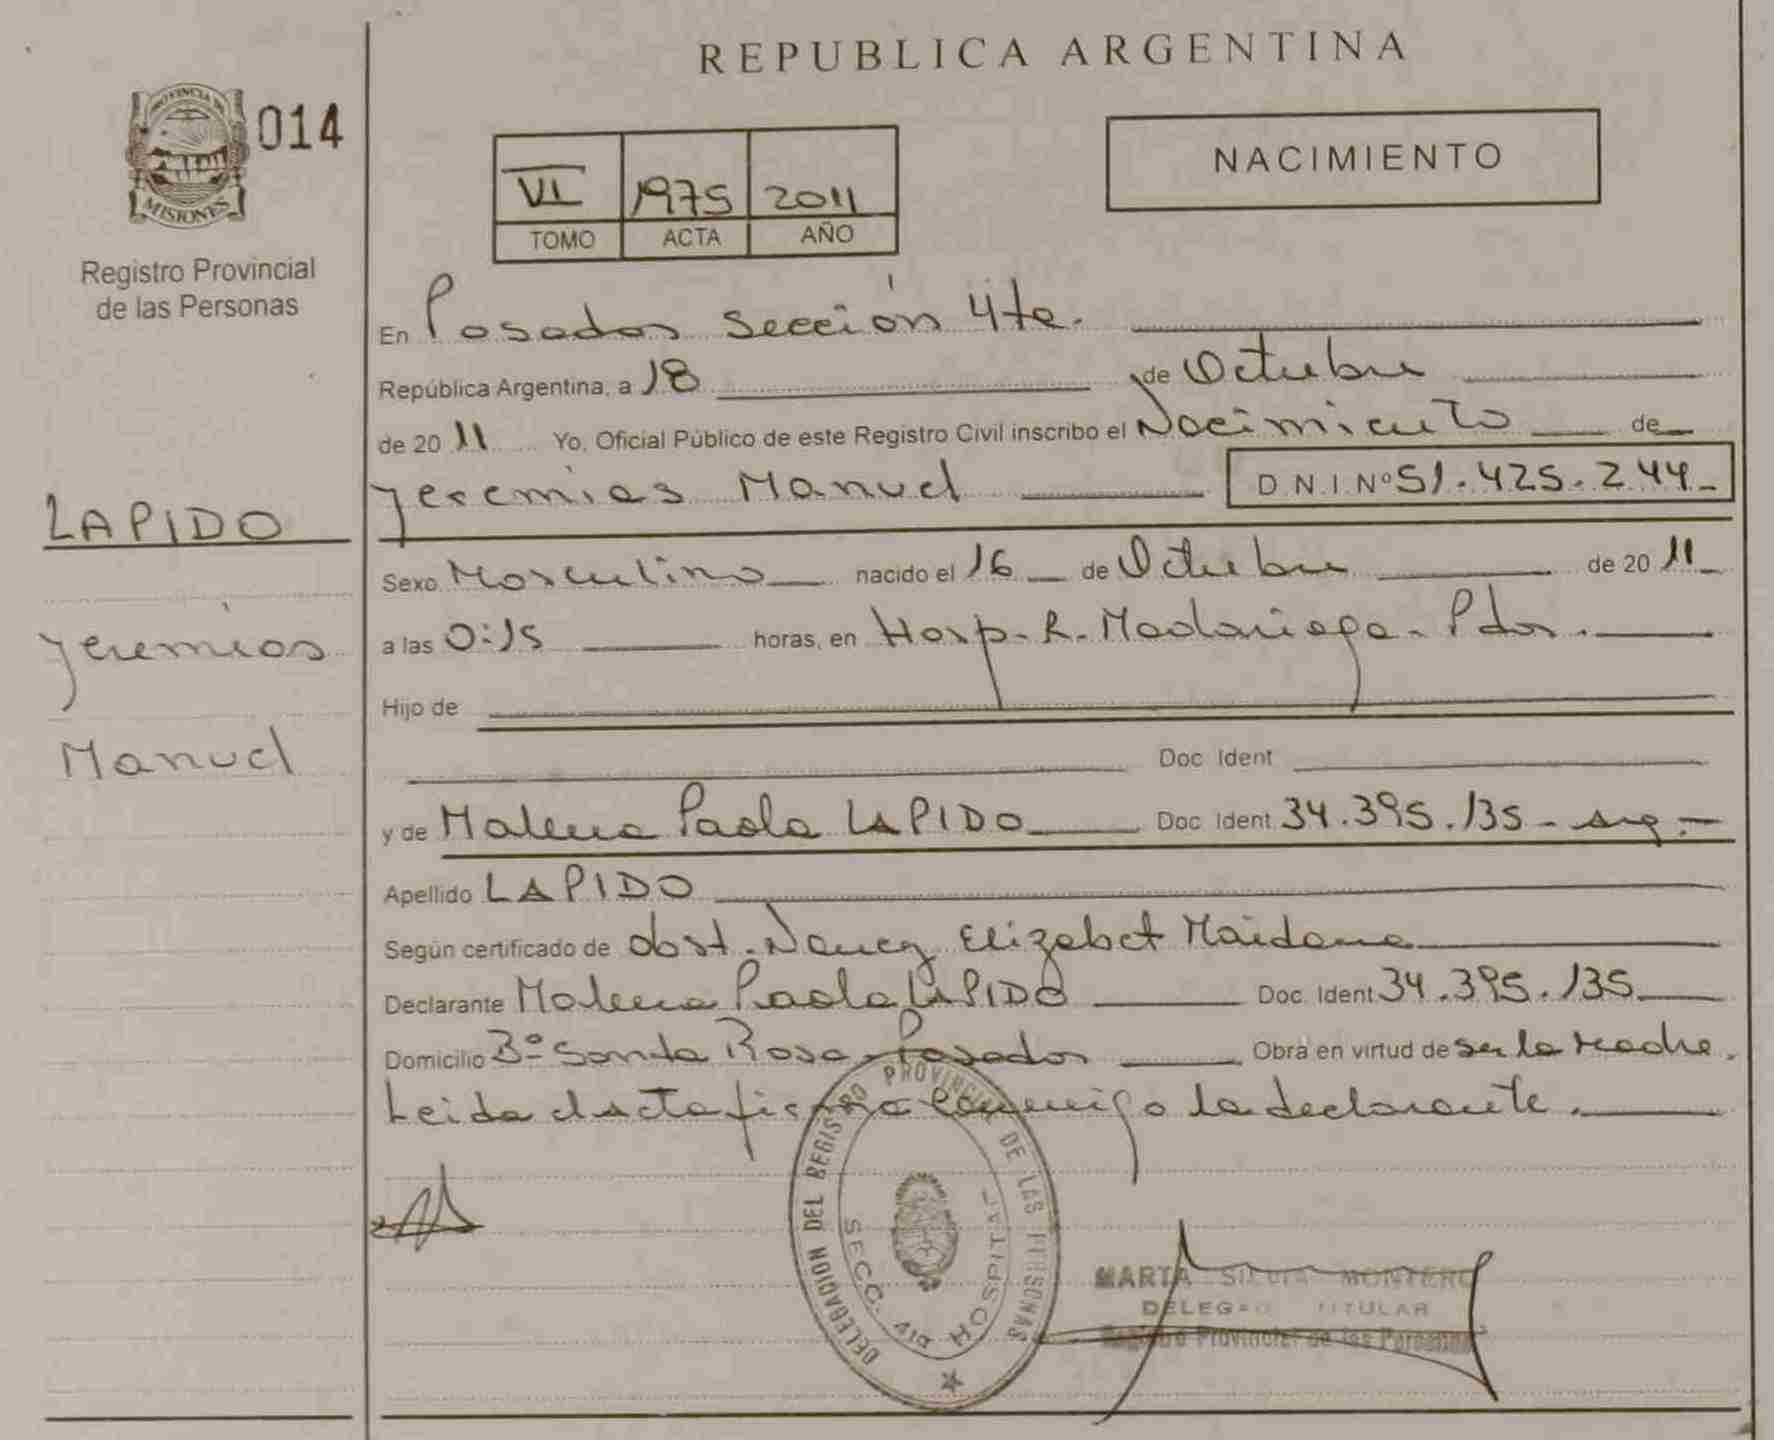 REPUBLICA ARGENTINA
PROVINCIA DE
MISIONES
014
Registro Provincial
de las Personas
VI 1975 2011
TOMO ACTA AÑO
NACIMIENTO
En Posadas Sección 4ta.
República Argentina, a 18 de Octubre
de 2011 Yo, Oficial Público de este Registro Civil inscribo el Nacimiento de
Jeremias Manuel D.N.I.Nº 51.425.244
LAPIDO
Jeremias
Manuel
Sexo Masculino nacido el 16 de Octubre de 2011
a las 0:15 horas, en Hosp. R. Madariaga. Pdas.
Hijo de
Doc. Ident
y de Malena Paola LAPIDO Doc. Ident 34.395.135 - arg.
Apellido LAPIDO
Según certificado de obst. Nancy Elizabet Maidana
Declarante Malena Paola LAPIDO Doc. Ident 34.395.135
Domicilio Bº Santa Rosa - Posadas Obra en virtud de ser la madre.
Leida el acta firma conmigo la declarante.
DELEGACION DEL REGISTRO PROVINCIAL DE LAS PERSONAS
SECC. 4ta HOSPITAL
MARTA SILVIA MONTERO
DELEGADO TITULAR
Registro Provincial de las Personas